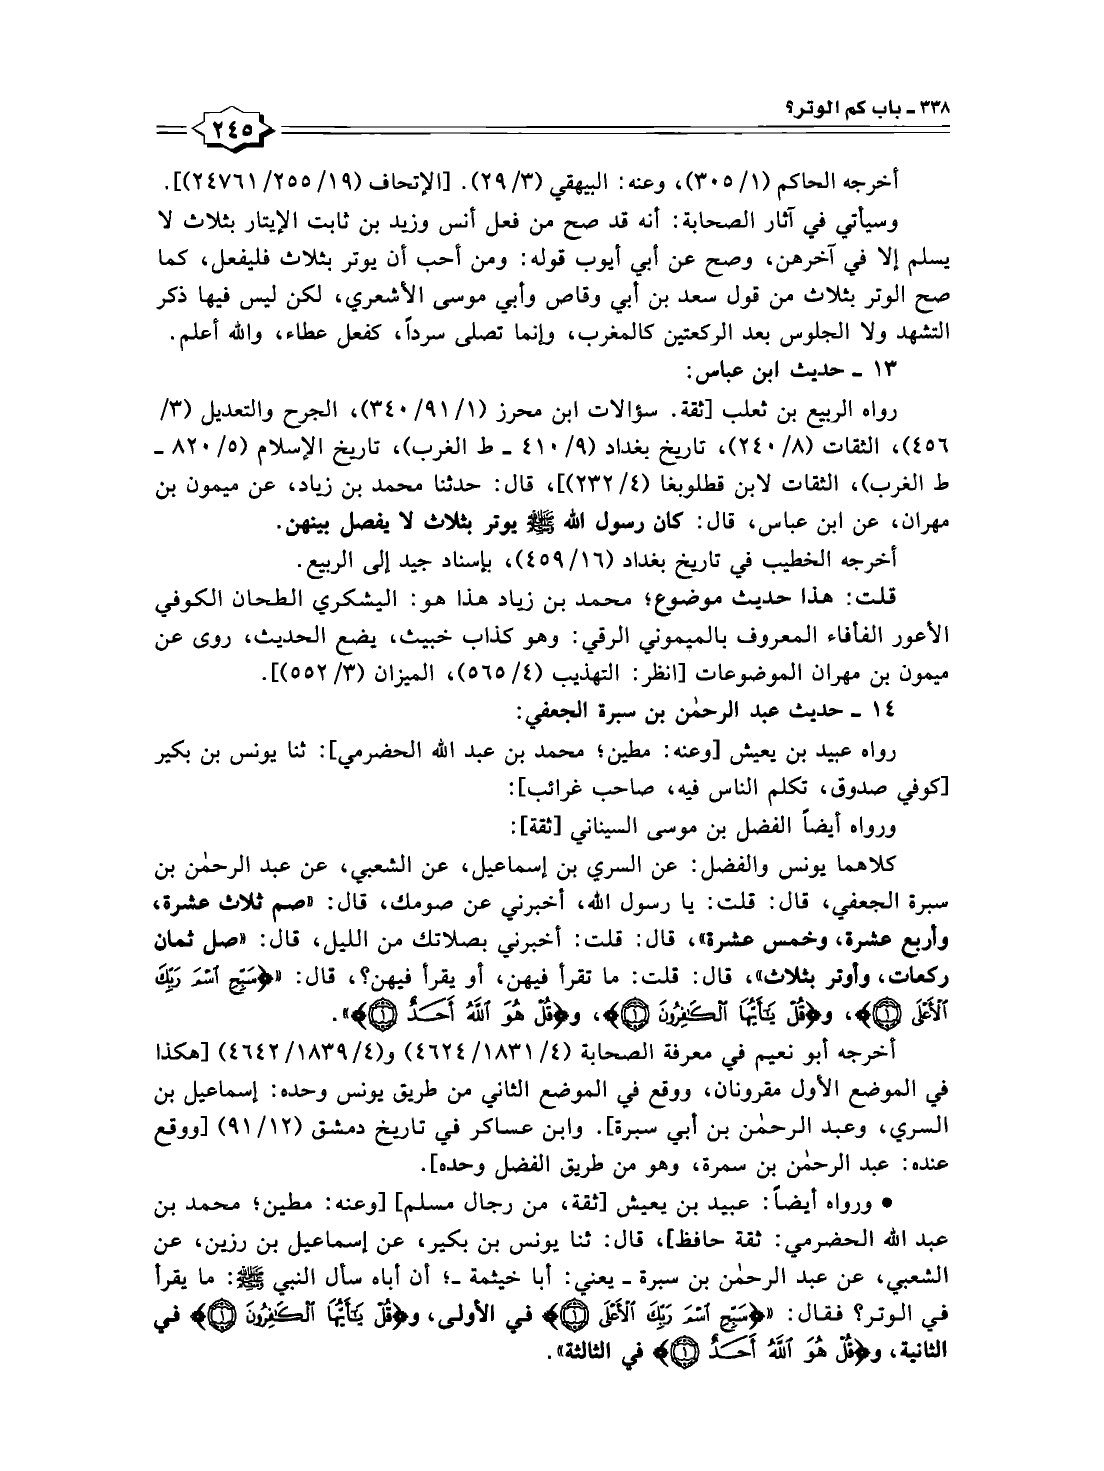 ٣٣٨ ـ باب كم الوتر؟
٢٤٥
أخرجه الحاكم (٣٠٥/١)، وعنه: البيهقي (٢٩/٣). [الإتحاف (٢٤٧٦١/٢٥٥/١٩)].
وسيأتي في آثار الصحابة: أنه قد صح من فعل أنس وزيد بن ثابت الإيتار بثلاث لا
يسلم إلا في آخرهن، وصح عن أبي أيوب قوله: ومن أحب أن يوتر بثلاث فليفعل، كما
صح الوتر بثلاث من قول سعد بن أبي وقاص وأبي موسى الأشعري، لكن ليس فيها ذكر
التشهد ولا الجلوس بعد الركعتين كالمغرب، وإنما تصلى سرداً، كفعل عطاء، والله أعلم.
١٣ ـ حديث ابن عباس:
رواه الربيع بن ثعلب [ثقة. سؤالات ابن محرز (٣٤٠/٩١/١)، الجرح والتعديل (٣/
٤٥٦)، الثقات (٢٤٠/٨)، تاريخ بغداد (٤١٠/٩ ـ ط الغرب)، تاريخ الإسلام (٨٢٠/٥ ـ
ط الغرب)، الثقات لابن قطلوبغا (٢٣٢/٤)]، قال: حدثنا محمد بن زياد، عن ميمون بن
مهران، عن ابن عباس، قال: كان رسول الله ﷺ يوتر بثلاث لا يفصل بينهن.
أخرجه الخطيب في تاريخ بغداد (٤٥٩/١٦)، بإسناد جيد إلى الربيع.
قلت: هذا حديث موضوع؛ محمد بن زياد هذا هو: اليشكري الطحان الكوفي
الأعور الفأفاء المعروف بالميموني الرقي: وهو كذاب خبيث، يضع الحديث، روى عن
ميمون بن مهران الموضوعات [انظر: التهذيب (٥٦٥/٤)، الميزان (٥٥٢/٣)].
١٤ ـ حديث عبد الرحمٰن بن سبرة الجعفي:
رواه عبيد بن يعيش [وعنه: مطين؛ محمد بن عبد الله الحضرمي]: ثنا يونس بن بكير
[كوفي صدوق، تكلم الناس فيه، صاحب غرائب]:
ورواه أيضاً الفضل بن موسى السيناني [ثقة]:
كلاهما يونس والفضل: عن السري بن إسماعيل، عن الشعبي، عن عبد الرحمٰن بن
سبرة الجعفي، قال: قلت: يا رسول الله، أخبرني عن صومك، قال: «صم ثلاث عشرة،
وأربع عشرة، وخمس عشرة»، قال: قلت: أخبرني بصلاتك من الليل، قال: «صل ثمان
ركعات، وأوتر بثلاث»، قال: قلت: ما تقرأ فيهن، أو يقرأ فيهن؟، قال: «﴿سَبِّحِ ٱسْمَ رَبِّكَ
ٱلْأَعْلَى ۝١﴾، و﴿قُلْ يَٰٓأَيُّهَا ٱلْكَٰفِرُونَ ۝١﴾، و﴿قُلْ هُوَ ٱللَّهُ أَحَدٌ ۝١﴾».
أخرجه أبو نعيم في معرفة الصحابة (٤٦٢٤/١٨٣١/٤) و(٤٦٤٢/١٨٣٩/٤) [هكذا
في الموضع الأول مقرونان، ووقع في الموضع الثاني من طريق يونس وحده: إسماعيل بن
السري، وعبد الرحمٰن بن أبي سبرة]. وابن عساكر في تاريخ دمشق (٩١/١٢) [ووقع
عنده: عبد الرحمٰن بن سمرة، وهو من طريق الفضل وحده].
• ورواه أيضاً: عبيد بن يعيش [ثقة، من رجال مسلم] [وعنه: مطين؛ محمد بن
عبد الله الحضرمي: ثقة حافظ]، قال: ثنا يونس بن بكير، عن إسماعيل بن رزين، عن
الشعبي، عن عبد الرحمٰن بن سبرة ـ يعني: أبا خيثمة ـ؛ أن أباه سأل النبي ﷺ: ما يقرأ
في الوتر؟ فقال: «﴿سَبِّحِ ٱسْمَ رَبِّكَ ٱلْأَعْلَى ۝١﴾ في الأولى، و﴿قُلْ يَٰٓأَيُّهَا ٱلْكَٰفِرُونَ ۝١﴾ في
الثانية، و﴿قُلْ هُوَ ٱللَّهُ أَحَدٌ ۝١﴾ في الثالثة».